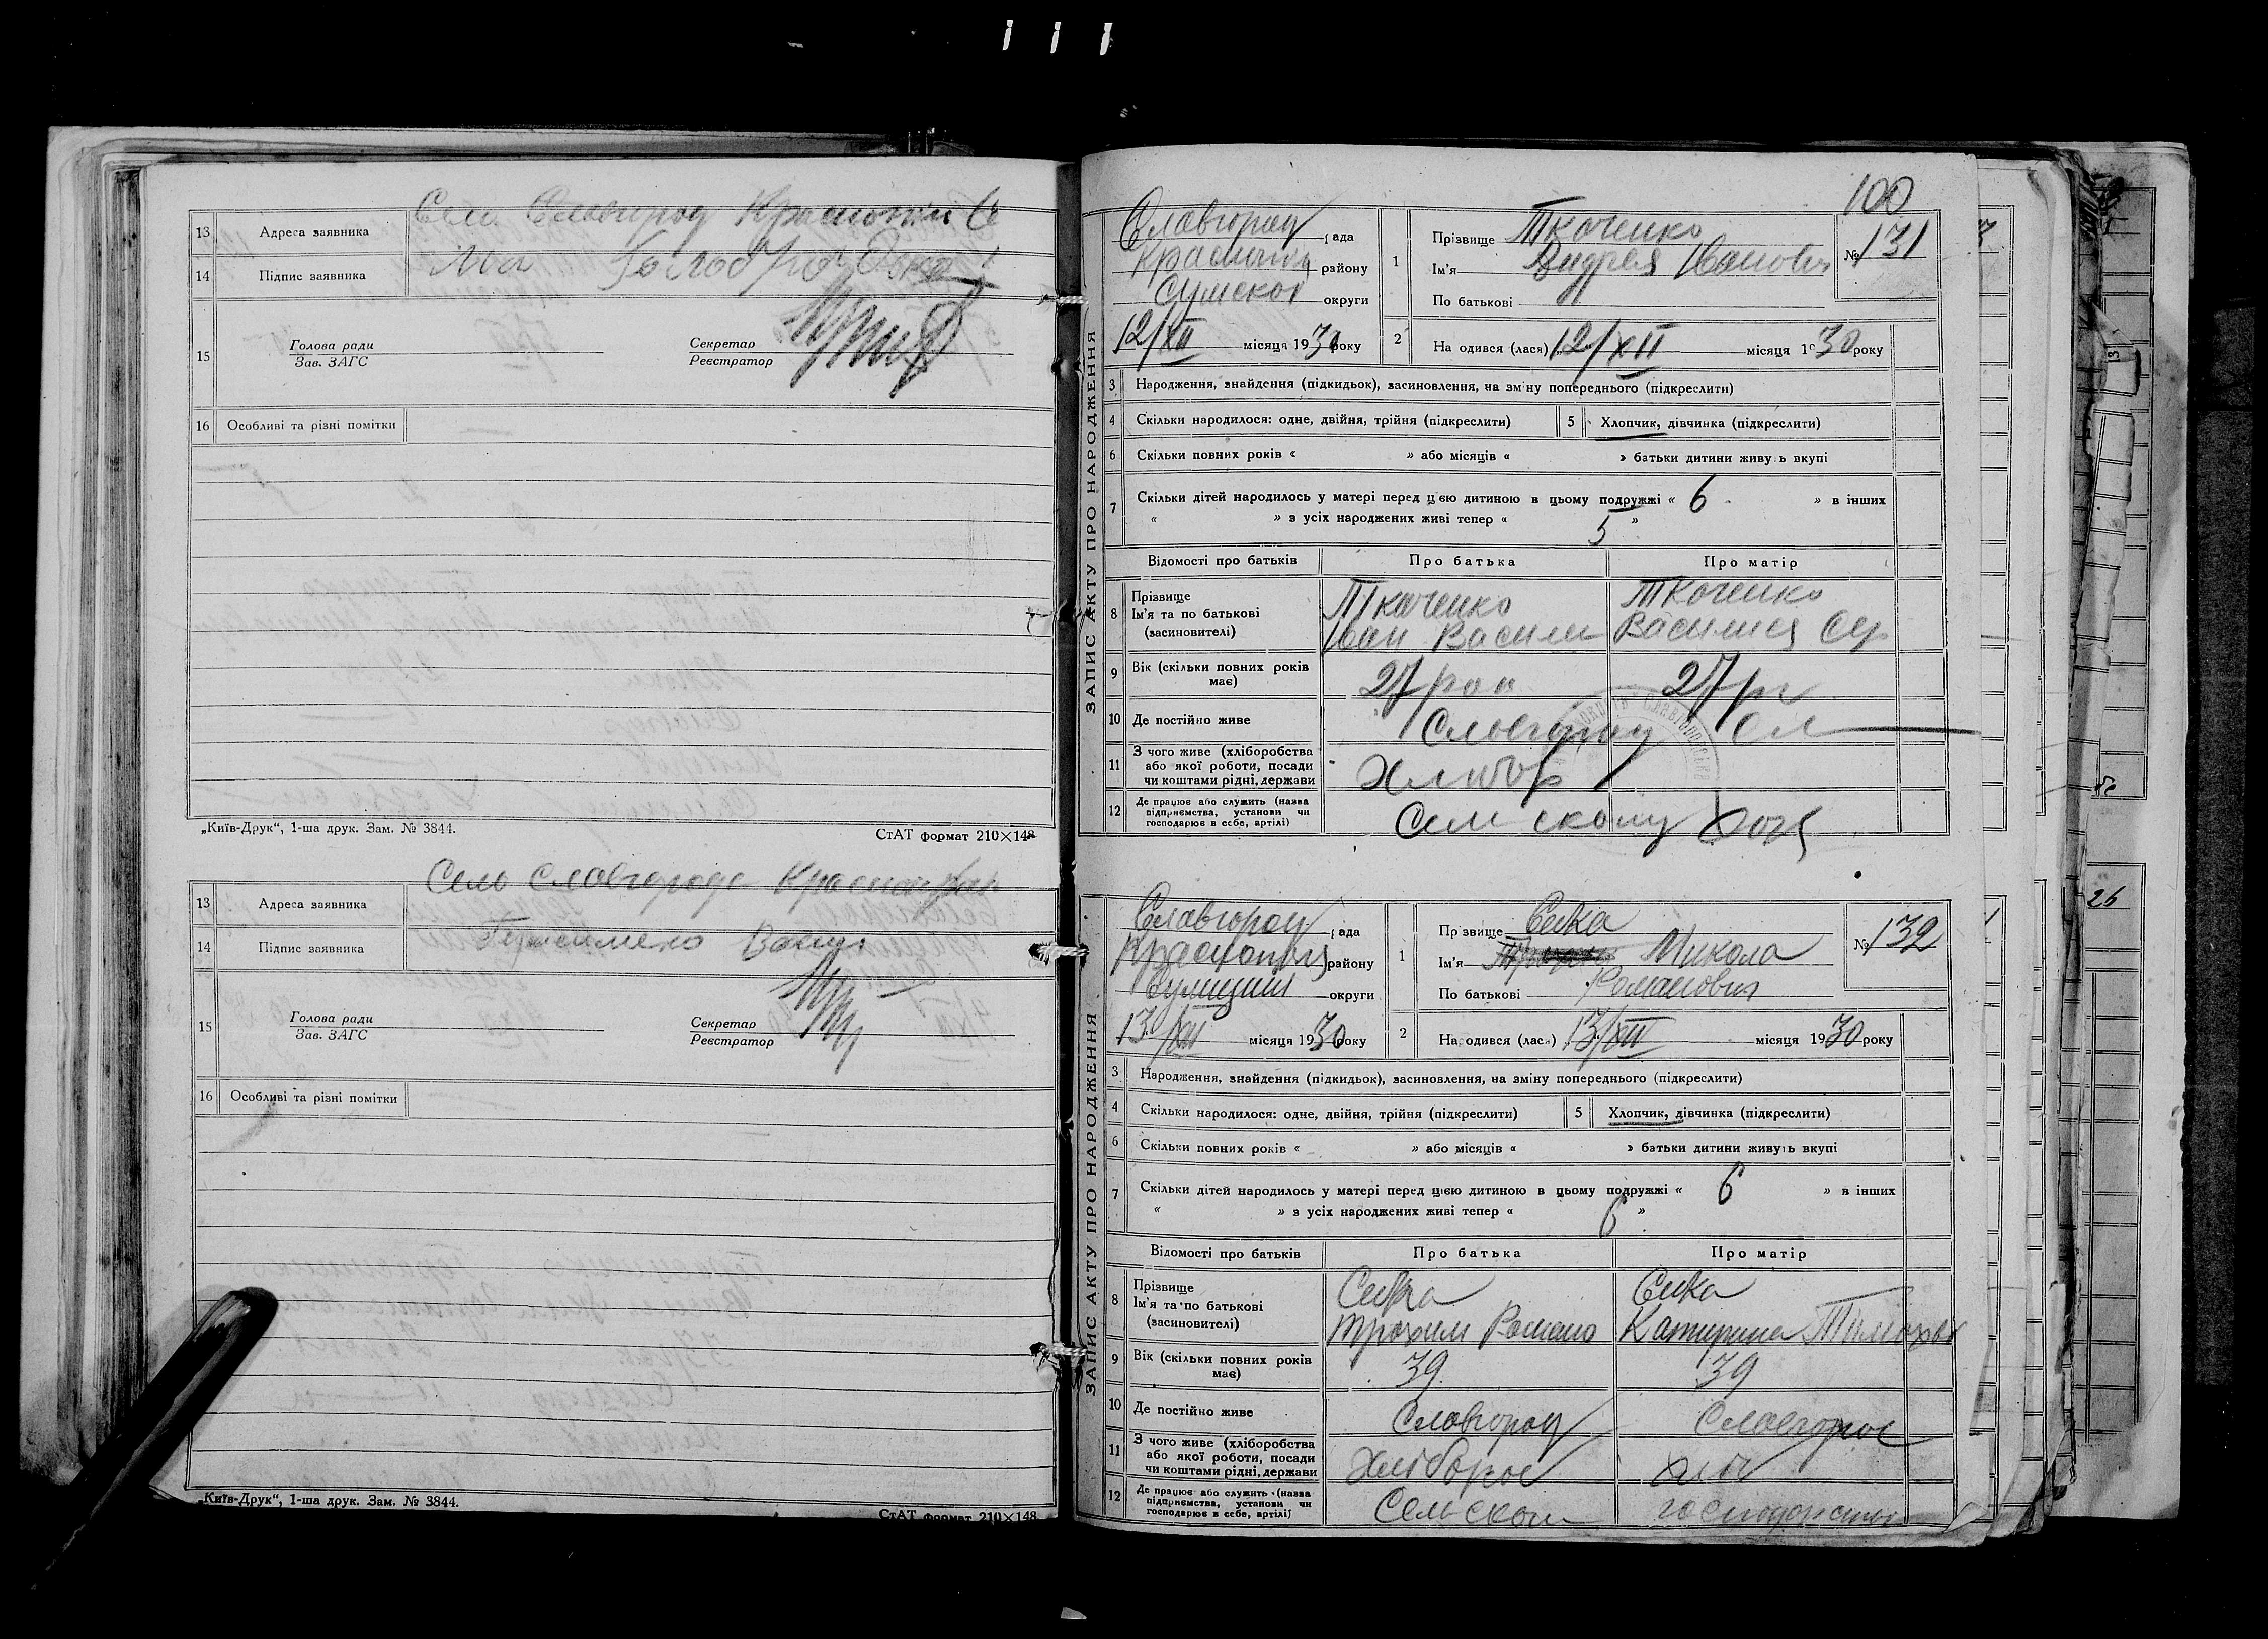 13 Адреса заявника Сели Славгород Краснопіл
14 Підпис заявника
15 Голова ради
Зав. ЗАГС
Секретар
Реєстратор
16 Особливі та різні помітки
„Київ-Друк“, 1-ша друк. Зам. № 3844. СтАТ формат 210×148
13 Адреса заявника Село Славгород
14 Підпис заявника
15 Голова ради
Зав. ЗАГС
Секретар
Реєстратор
16 Особливі та різні помітки
„Київ-Друк“, 1-ша друк. Зам. № 3844.
СтАТ формат 210×148
100
ЗАПИС АКТУ ПРО НАРОДЖЕННЯ
Славгород рада
району
округи
12/XII місяця 1930 року
1 Прізвище Ткаченко
Ім'я Андрей Іванович
По батькові
№ 131
2 На одився (лася) 12/XII місяця 1930 року
3 Народження, знайдення (підкидьок), засиновлення, на зміну попереднього (підкреслити)
4 Скільки народилося: одне, двійня, трійня (підкреслити) 5 Хлопчик, дівчинка (підкреслити)
6 Скільки повних років « » або місяців « » батьки дитини живуть вкупі
7 Скільки дітей народилось у матері перед цією дитиною в цьому подружжі « 6 » в інших
« » з усіх народжених живі тепер « 5 »
Відомості про батьків Про батька Про матір
8 Прізвище
Ім'я та по батькові
(засиновителі)
Ткаченко
Іван Васили
Ткаченко
Василиса
9 Вік (скільки повних років має) 27 27
10 Де постійно живе Славгород Сл
11 З чого живе (хліборобства
або якої роботи, посади
чи коштами рідні, держави
Хлибор
12 Де працює або служить (назва
підприємства, установи чи
господарює в себе, артілі)
Сельскому
ЗАПИС АКТУ ПРО НАРОДЖЕННЯ
Славгород рада
району
округи
13/XII місяця 1930 року
1 Прізвище Сивка
Ім'я Микола
По батькові Романович
№ 132
2 Народився (лася) 13/XII місяця 1930 року
3 Народження, знайдення (підкидьок), засиновлення, на зміну попереднього (підкреслити)
4 Скільки народилося: одне, двійня, трійня (підкреслити) 5 Хлопчик, дівчинка (підкреслити)
6 Скільки повних років « » або місяців « » батьки дитини живуть вкупі
7 Скільки дітей народилось у матері перед цією дитиною в цьому подружжі « 6 » в інших
« » з усіх народжених живі тепер « 6 »
Відомості про батьків Про батька Про матір
8 Прізвище
Ім'я та по батькові
(засиновителі)
Сивка
Трохим Романо
Сивка
Катирина
9 Вік (скільки повних років має) 39 39
10 Де постійно живе Славгород Славгород
11 З чого живе (хліборобства
або якої роботи, посади
чи коштами рідні, держави
12 Де працює або служить (назва
підприємства, установи чи
господарює в себе, артілі)
Сельском
26